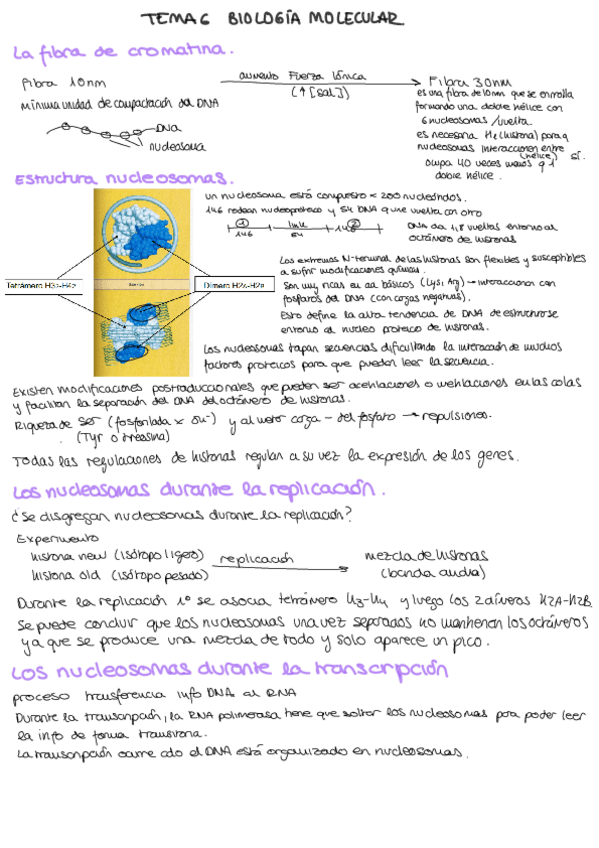 TEMA 6 BIOLOGÍA MOLECULAR
La fibra de cromatina.
Fibra 10nm
aumento Fuerza Iónica
(↑[sal])
Fibra 30nm
mínima unidad de compactación del DNA
DNA
nucleosoma
es una fibra de 10nm que se enrolla
formando una doble hélice con
6 nucleosomas /vuelta.
es necesaria H1 (histona) para q
nucleosomas interaccionen entre
(hélice) sí.
ocupa 40 veces menos q 1
doble hélice.
Estructura nucleosomas.
un nucleosoma está compuesto × 200 nucleótidos.
146 rodean nucleoproteico y 54 DNA q une vuelta con otro
1 link 2
146 54 146
DNA da 1,8 vueltas entorno al
octámero de histonas
Tetrámero H3₂-H4₂
Dímero H2A-H2B
Los extremos N-terminal de las histonas son flexibles y susceptibles
a sufrir modificaciones químicas.
Son muy ricas en aa básicos (Lys, Arg) → interaccionan con
fosfatos del DNA (con cargas negativas).
Esto define la alta tendencia de DNA de estructurarse
entorno al nucleo proteico de histonas.
Los nucleosomas tapan secuencias dificultando la interacción de muchos
factores proteicos para que puedan leer la secuencia.
Existen modificaciones postraduccionales que pueden ser acetilaciones o metilaciones en las colas
y facilitan la separación del DNA del octámero de histonas.
Riqueza de ser (fosforilada × su-) y al meter carga - del fosfato → repulsiones.
(Tyr o treosina)
Todas las regulaciones de histonas regulan a su vez la expresión de los genes.
Los nucleosomas durante la replicación.
¿Se disgregan nucleosomas durante la replicación?
Experimento
histona new (isótopo ligero)
replicación
mezcla de histonas
histona old (isótopo pesado)
(banda ancha)
Durante la replicación 1º se asocia tetrámero H3-H4 y luego los 2 dímeros H2A-H2B.
Se puede concluir que los nucleosomas una vez separados no mantienen los octámeros
ya que se produce una mezcla de todo y solo aparece un pico.
Los nucleosomas durante la transcripción
proceso transferencia info DNA al RNA
Durante la transcripción, la RNA polimerasa tiene que soltar los nucleosomas para poder leer
la info de forma transitoria.
La transcripción ocurre cdo el DNA está organizado en nucleosomas.